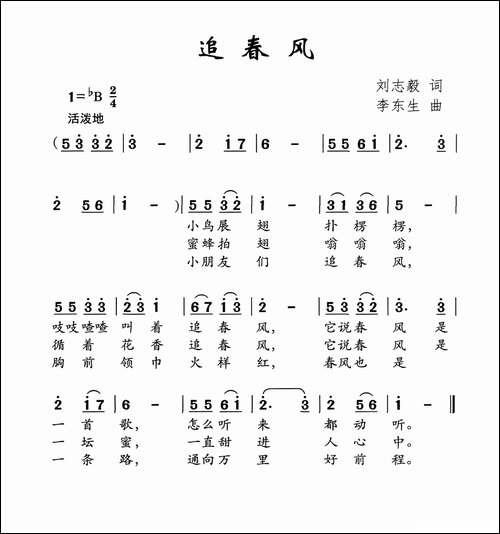 追春风
刘志毅 词
1=♭B 2/4
李东生 曲
活泼地
(5 3̇ 3̇ 2̇ | 3̇ - | 2̇ i 7 | 6 - | 5 5 6 i | 2̇. 3̇ |
2̇ 5 6 | i - ) | 5 5 3̇ 2̇ | i - | 3 1 3 6 | 5 - |
小鸟展 翅 扑 楞 楞,
蜜蜂拍 翅 嗡 嗡 嗡,
小朋友 们 追 春 风,
5 5 3̇ 3̇ | 2̇ 3̇ i | 6 7 i 3̇ | 2̇ - | 5 5 3̇ 5 | 3̇. 3̇ |
吱吱喳喳 叫 着 追 春 风, 它说春 风 是
循 着 花 香 追 春 风, 它说春 风 是
胸 前 领 巾 火 样 红, 春风也 是
2̇ i 7 | 6 - | 5 5 6 i | 2̇. 3̇ | 2̇ 5 6 | i - ‖
一 首 歌, 怎么听 来 都 动 听。
一 坛 蜜, 一直甜 进 人 心 中。
一 条 路, 通向万 里 好 前 程。